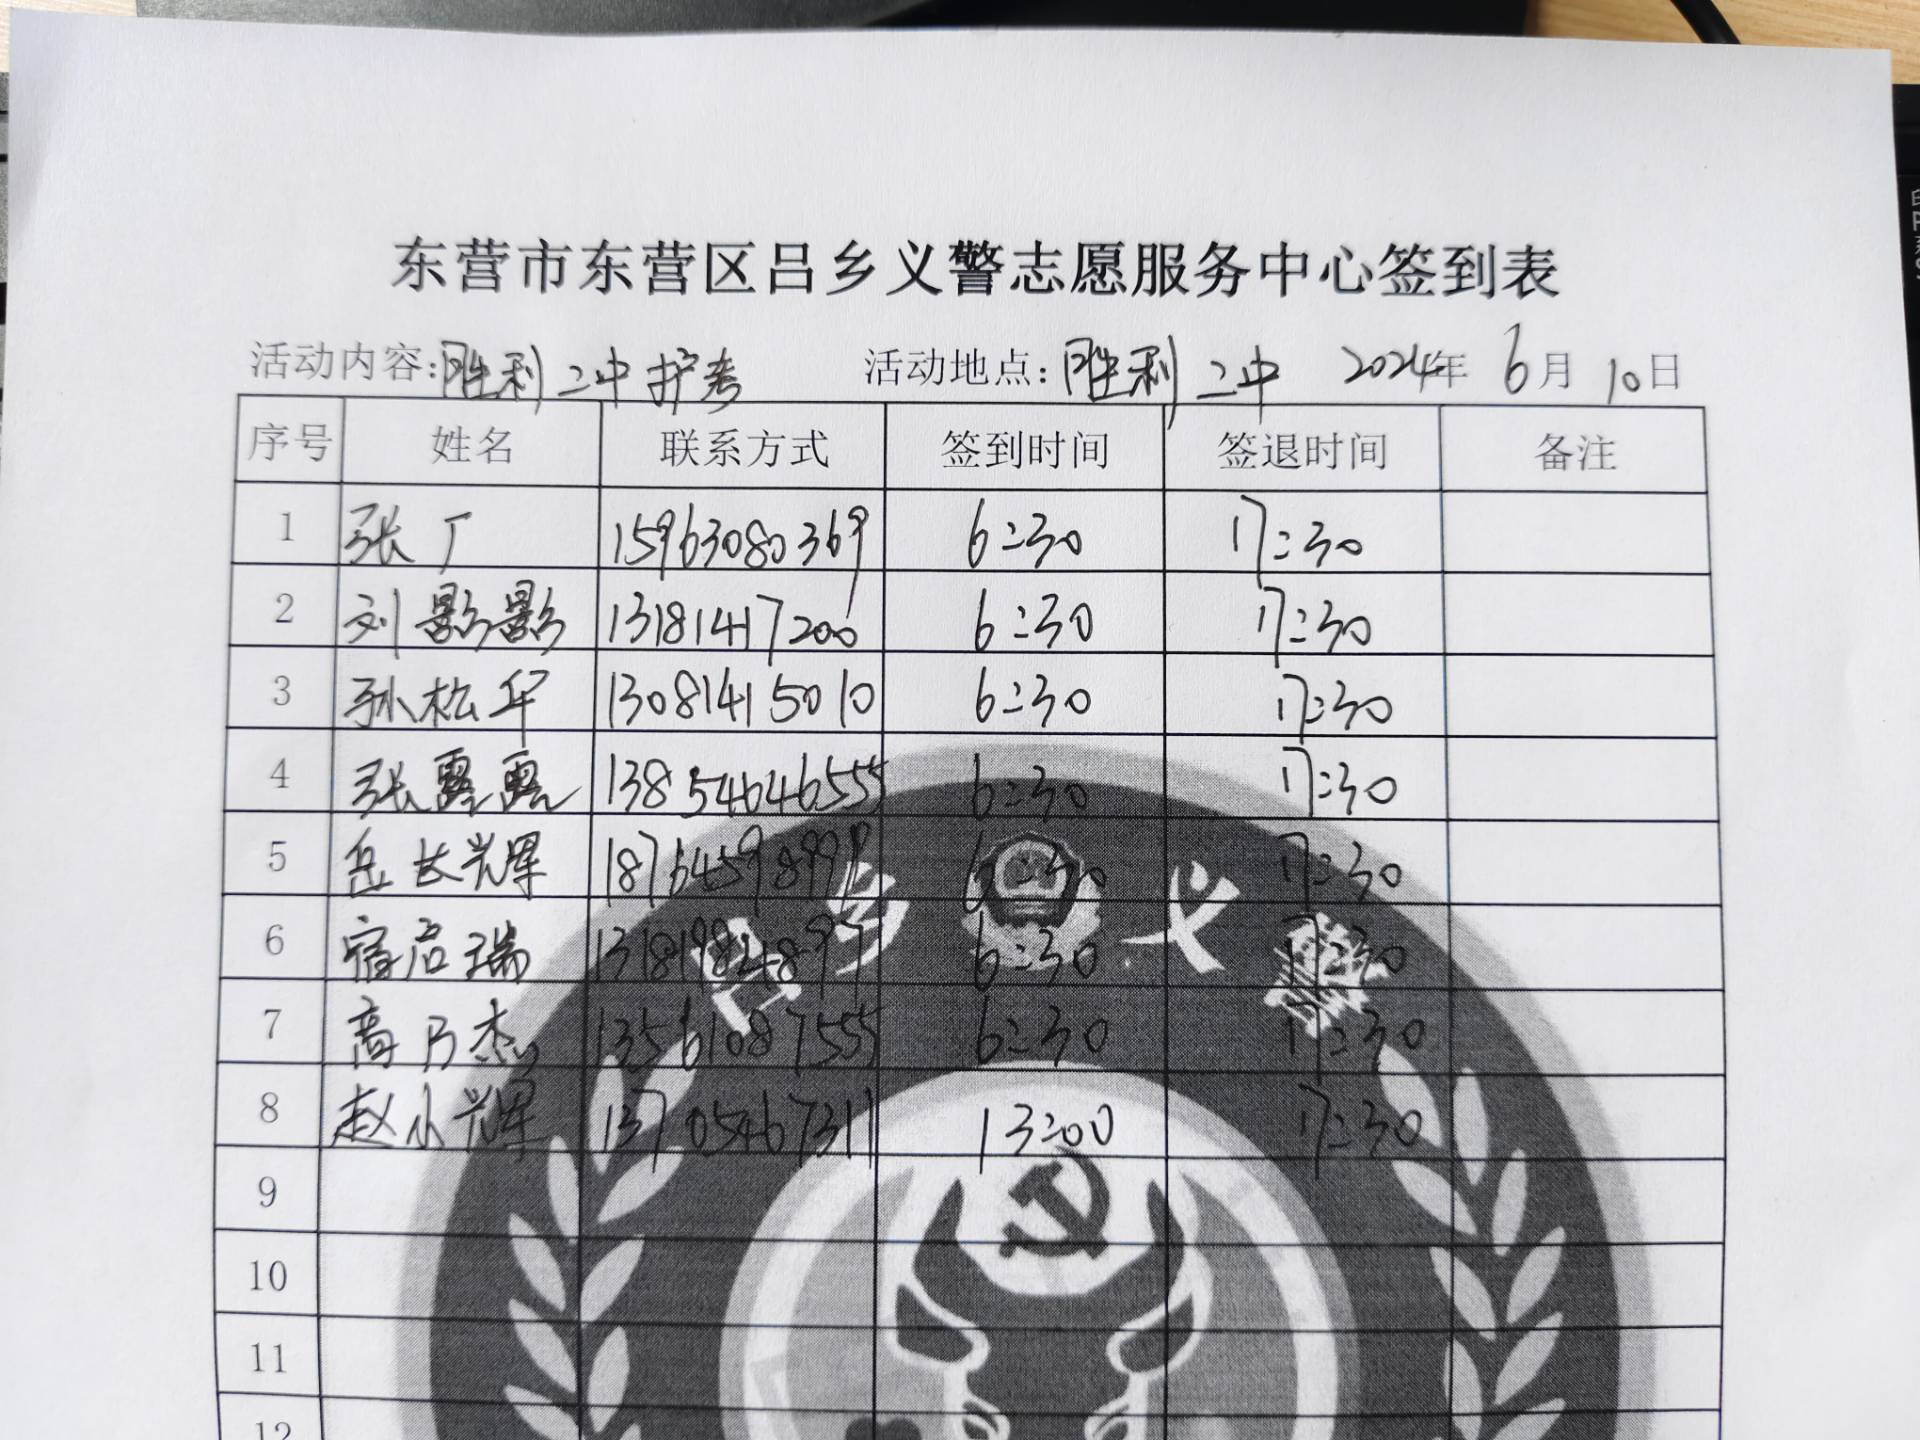 东营市东营区吕乡义警志愿服务中心签到表
活动内容:胜利二中护考 活动地点:胜利二中 2024年 6月 10日
序号 姓名 联系方式 签到时间 签退时间 备注
1 张广 15963080369 6:30 17:30
2 刘影影 13181417200 6:30 17:30
3 孙松华 13081415010 6:30 17:30
4 张露露 13854646555 6:30 17:30
5 岳长兴军 6:30 17:30
6 宿启瑞 13181984897 6:30 17:30
7 高乃杰 13561087555 6:30 17:30
8 赵小辉 13705467311 13:00 17:30
吕乡义警
9
10
11
12